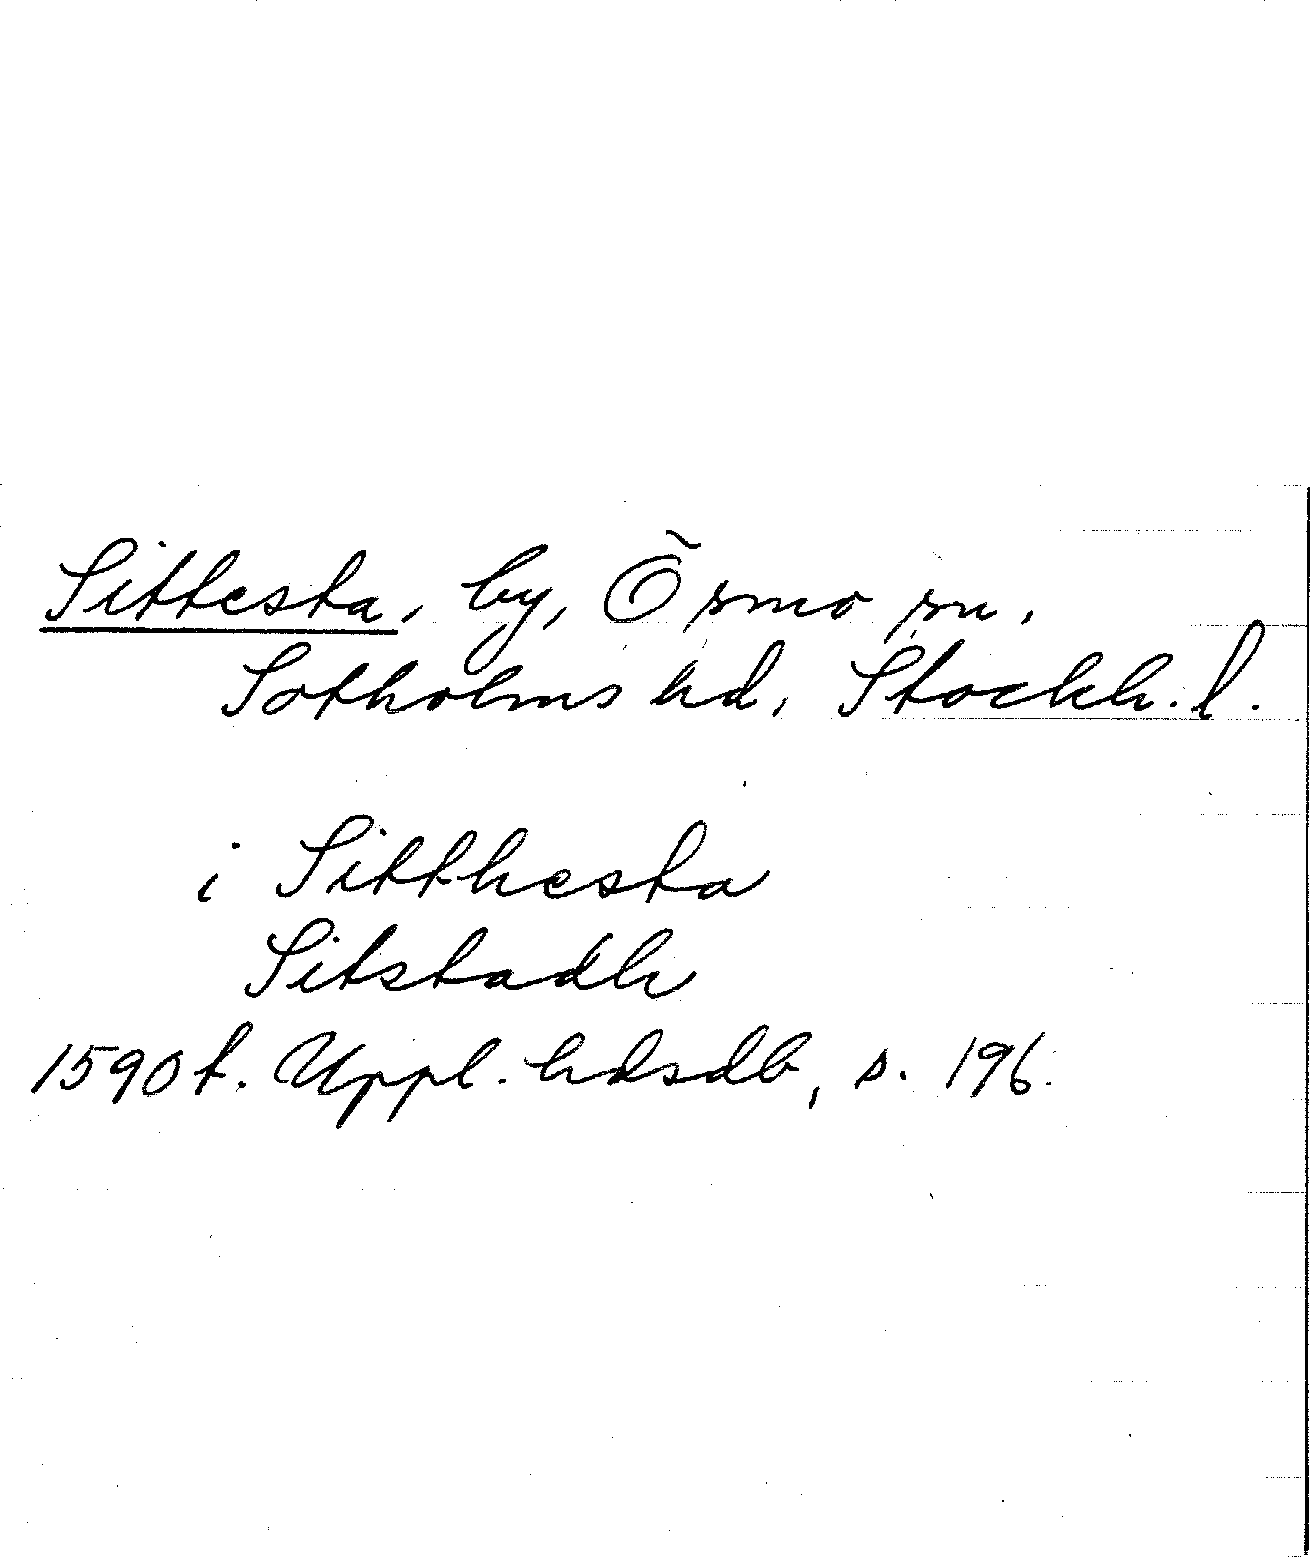 Sittesta, by, Ösmo sn,
Sotholms hd, Stockh. l.
i Sitthesta
Sitstadh
1590 t. Uppl. hdsdb, s. 196.